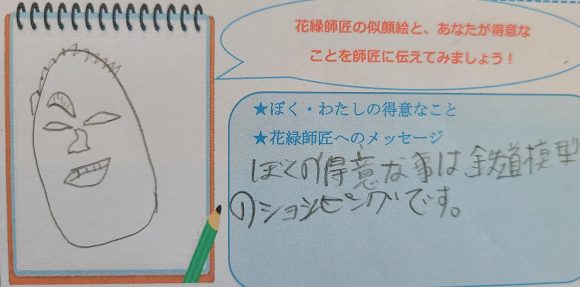 花緑師匠の似顔絵と、あなたが得意な
ことを師匠に伝えてみましょう！
★ぼく・わたしの得意なこと
★花緑師匠へのメッセージ
ぼくの得意な事は鉄道模型
のションピングです。